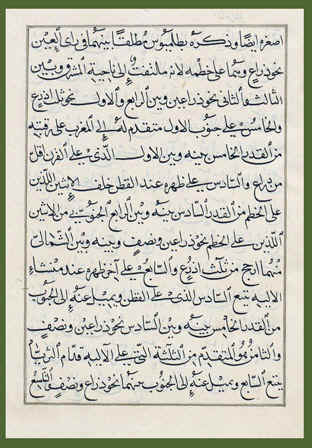 اصغره ايضا وذكره بطلميوس مطلقا بينهما في رأى العين
نحو ذراع وهما على خطمه لانه ملتفت الى ناحية المشرق وبين
الثالث والثاني نحو ذراعين وبين الرابع والاول نحو ثلث اذرع
والخامس على جنوب الاول متقدم له الى المغرب على رقبته
من القدر الخامس بينه وبين الاول الذى على القرن اقل
من ذراع والسادس على ظهره عند القطن خلف الاثنين اللذين
على الخطم من القدر السادس بينه وبين الرابع الجنوبى من الاثنين
اللذين على الخطم نحو ذراعين ونصف وبينه وبين الشمالى
منهما ارجح من ثلث اذرع والسابع على آخر ظهره عند منشاء
الالية يتبع السادس الذى على القطن ويميل عنه الى الجنوب
من القدر الخامس بينه وبين السادس نحو ذراعين ونصف
والثامن هو المتقدم من الثلثة التى على الالية قدام الثريا
يتبع السابع ويميل عنه الى الجنوب بينهما نحو ذراع ونصف والتاسع